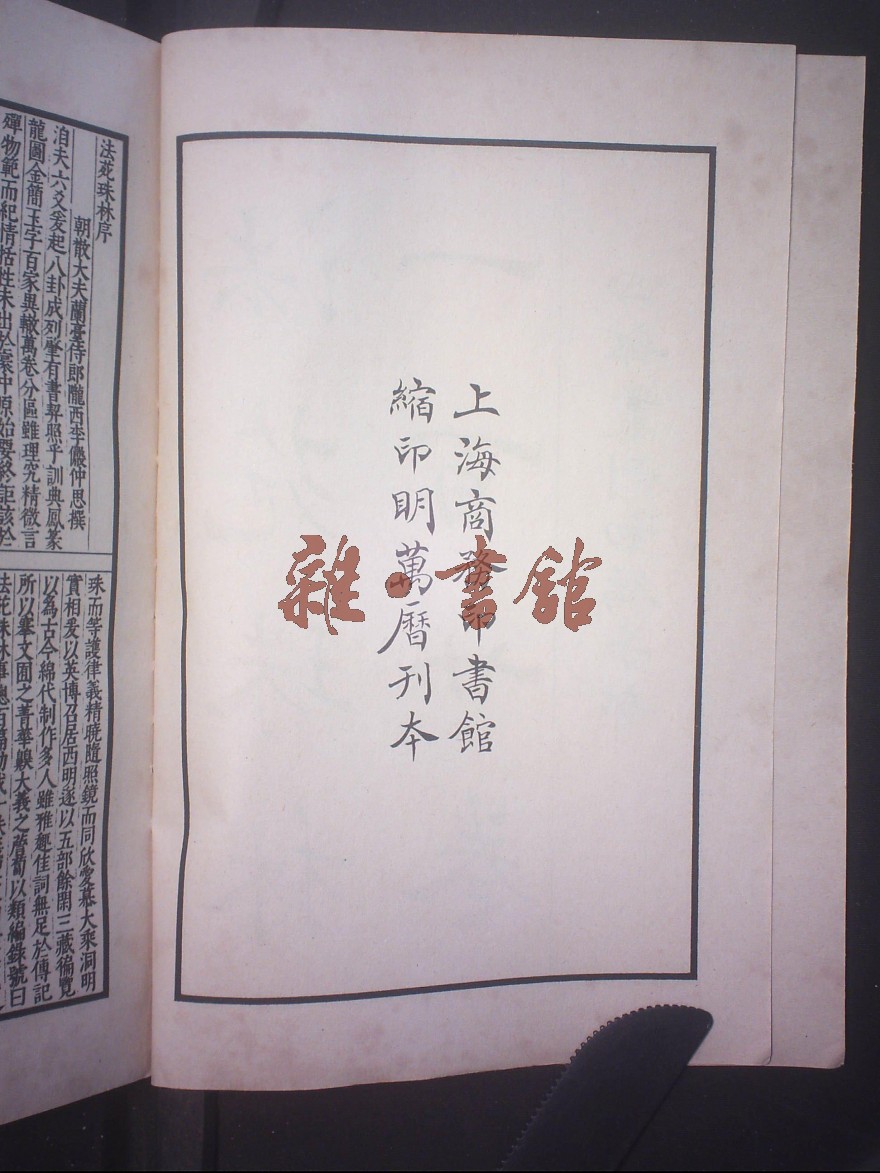 上海商務印書館
縮印明萬曆刊本
雜·書館
法苑珠林序
朝散大夫蘭臺侍郎隴西李儼仲思撰
洎夫六爻爰起八卦成列肇有書契照乎訓典鳳篆
龍圖金簡玉字百家異轍萬卷分區雖理究精微言
殫物範而紀情括性未出於寰中原始要終詎該於
珠而等護律義精曉隨照鏡而同欣愛慕大乘洞明
實相爰以英博召居西明遂以五部餘閑三藏徧覽
以為古今綿代制作多人雖雅趣佳詞無足於傳記
所以搴文囿之菁華嗅大義之薝蔔以類編錄號曰